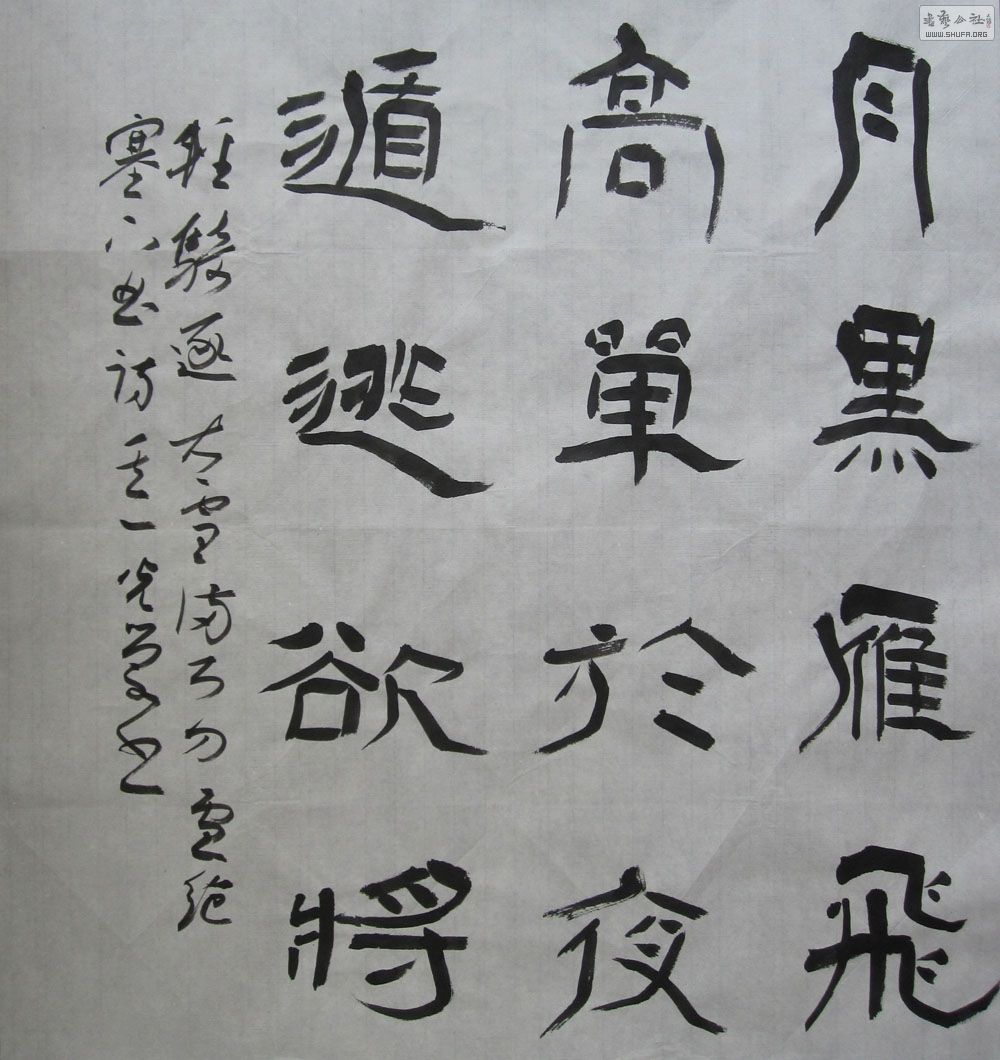 月黑雁飛
高單於夜
遁逃欲將
輕騎逐大雪滿弓刀盧綸
塞下曲詩一書
書藝公社
WWW.SHUFA.ORG